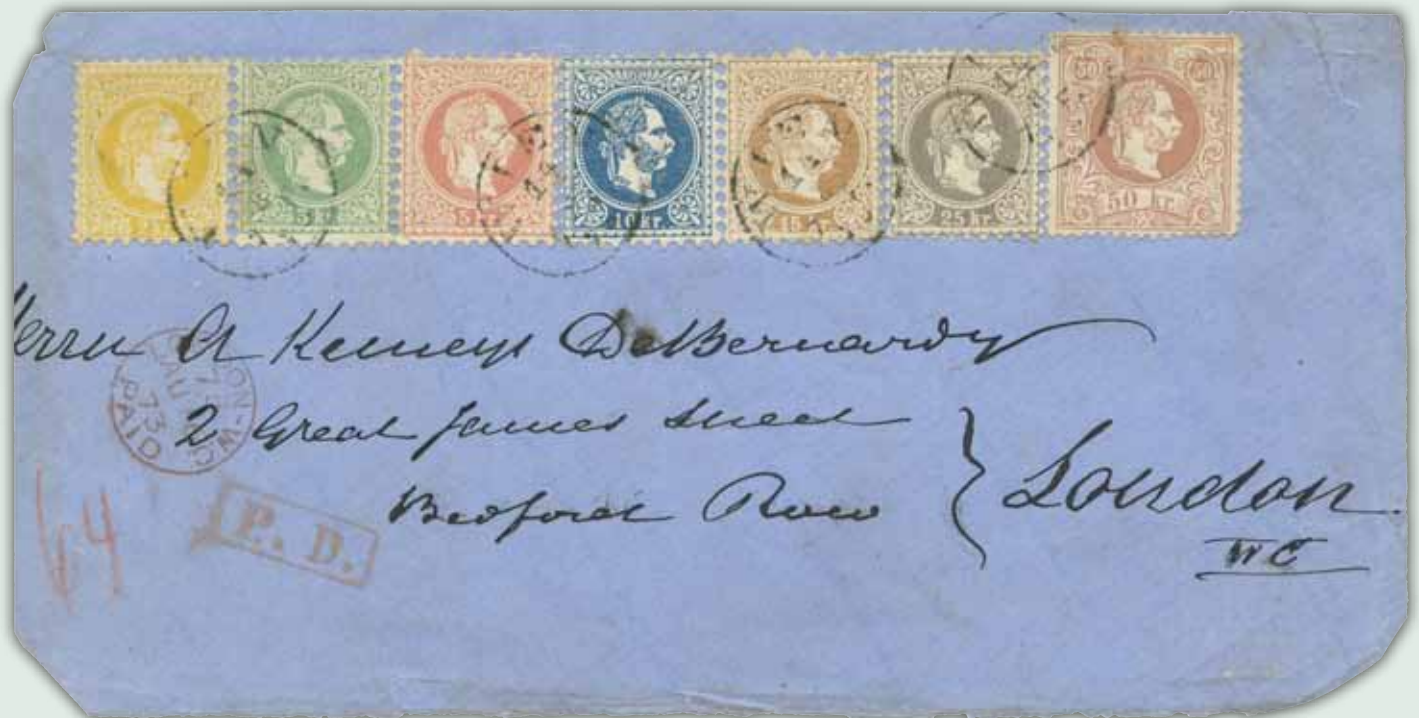 3 kr
5 kr
10 kr.
15 kr.
25 kr.
50 50
50 kr.
Herrn A Kemeys DeBernardy
2 Great James Street
Bedford Row
London
WC
LONDON-W.C
7
AU
73
PAID
P. D.
64